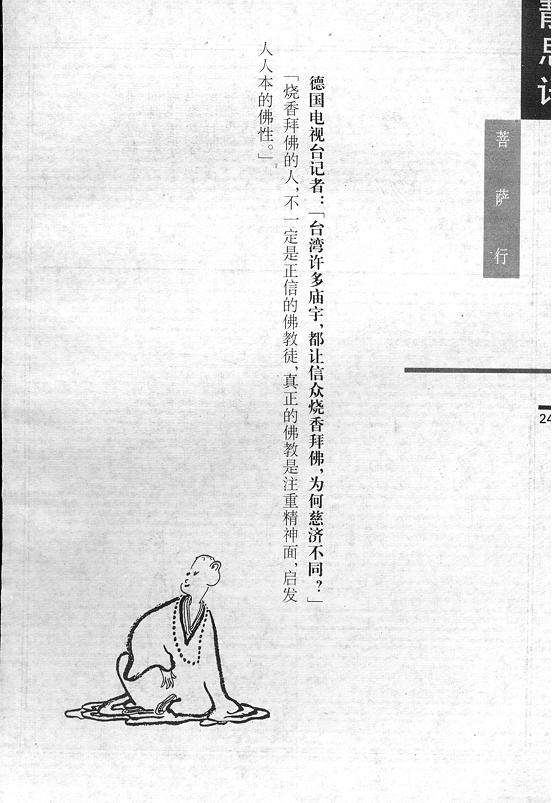 静思语
菩萨行
24
德国电视台记者：「台湾许多庙宇，都让信众烧香拜佛，为何慈济不同？」
「烧香拜佛的人，不一定是正信的佛教徒，真正的佛教是注重精神面，启发
人人本的佛性。」